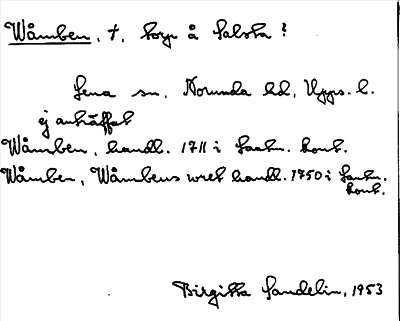 Wåmben, †, torp å Salsta?
Lena sn, Norunda hd, Upps. l.
ej anträffat
Wåmben, handl. 1711 i Lantm. kont.
Wåmben, Wåmbens wret handl. 1750 i Lantm.
kont.
Birgitta Sandelin, 1953